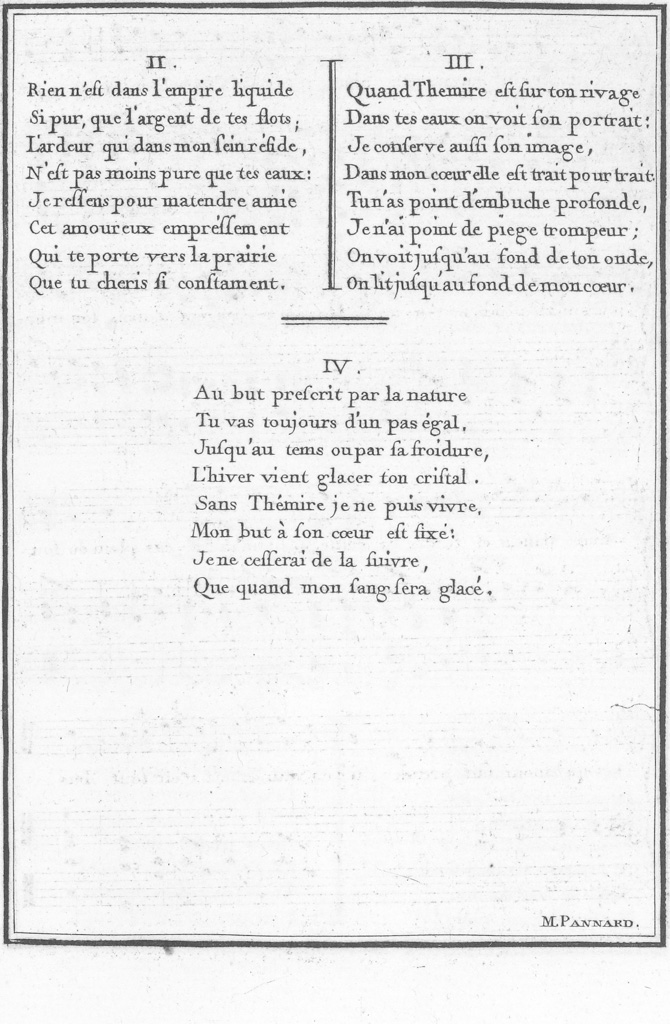 II.
Rien n'eſt dans l'empire liquide
Si pur, que l'argent de tes flots;
L'ardeur qui dans mon ſein réſide,
N'eſt pas moins pure que tes eaux:
Je reſſens pour ma tendre amie
Cet amoureux empréſſement
Qui te porte vers la prairie
Que tu cheris ſi conſtament.
III.
Quand Themire eſt ſur ton rivage
Dans tes eaux on voit ſon portrait:
Je conſerve auſſi ſon image,
Dans mon cœur elle eſt trait pour trait.
Tu n'as point d'embuche profonde,
Je n'ai point de piege trompeur;
On voit juſqu'au fond de ton onde,
On lit juſqu'au fond de mon cœur.
IV.
Au but preſcrit par la nature
Tu vas toujours d'un pas égal,
Juſqu'au tems ou par ſa froidure,
L'hiver vient glacer ton criſtal.
Sans Thémire je ne puis vivre,
Mon but à ſon cœur eſt fixé:
Je ne ceſſerai de la ſuivre,
Que quand mon sang ſera glacé.
M. PANNARD.